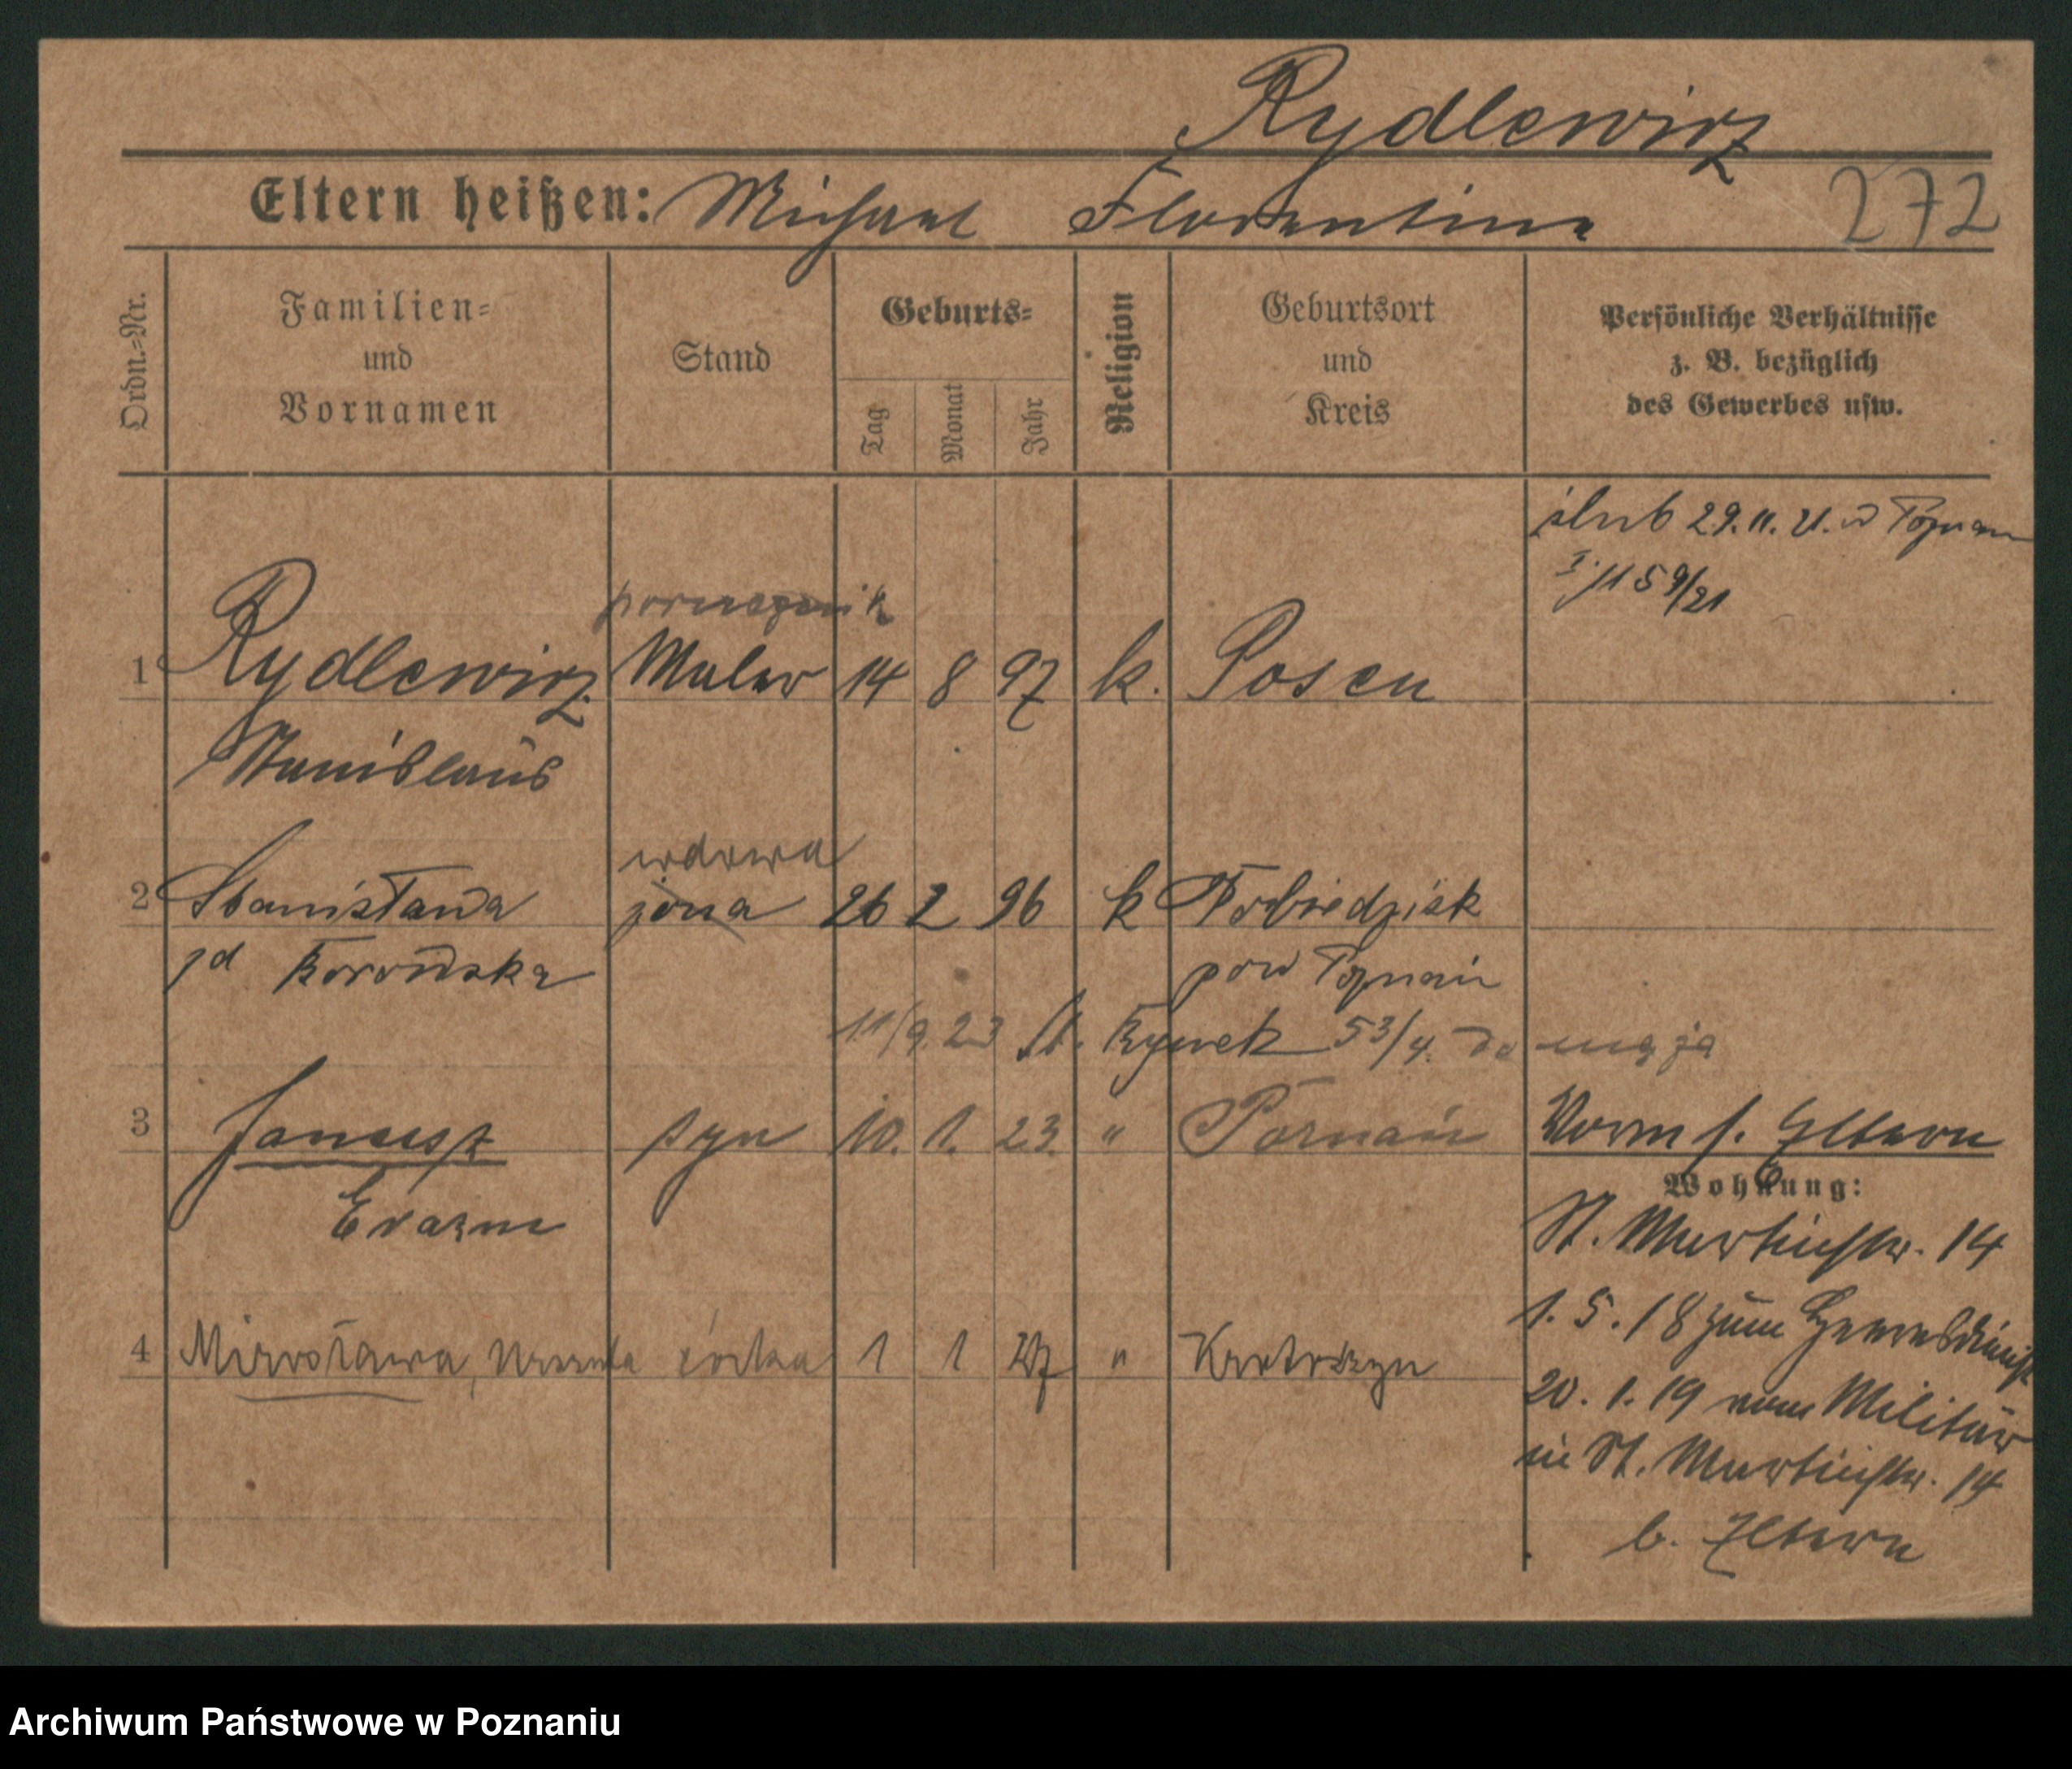 Rydlewicz
Eltern heißen: Michael Florentina 272
Ordn.-Nr.
Familien-
und
Vornamen
Stand
Geburts-
Tag
Monat
Jahr
Religion
Geburtsort
und
Kreis
Persönliche Verhältnisse
z. B. bezüglich
des Gewerbes usw.
ślub 29.11.21. w Poznan
1159/21
1 Rydlewicz Maler 14 8 97 k. Posen
Stanislaus
wdowa
2 Stanisława żona 26 2 96 k Pobiedzisk
pow Poznań
11/9.23 St. Rynek 53/4.
3 syn 10. 1. 23. " Poznań
Erazm
Eltern
Wohnung:
St. Martinstr. 14
1.5.18 zum Heeresdienst
20.1.19 vom Militär
in St. Martinstr. 14
b. Eltern
4 Mirosława, Urszula córka 1 1 27 " Krotoszyn
Archiwum Państwowe w Poznaniu